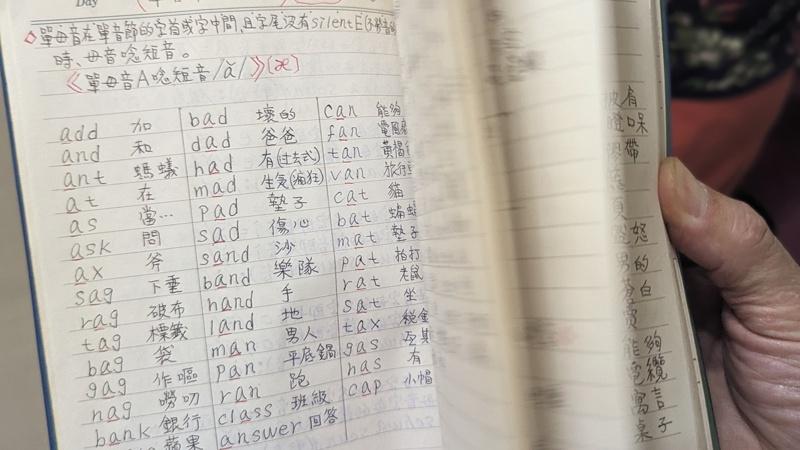 Day
◇單母音在單音節的字首或字中間,且字尾沒有silentE(不發音的
時、母音唸短音。
《單母音A唸短音/ă/》[æ]
add 加
and 和
ant 螞蟻
at 在
as 當…
ask 問
ax 斧
sag 下垂
rag 破布
tag 標籤
bag 袋
gag 作嘔
nag 嘮叨
bank 銀行
蘋果
bad 壞的
dad 爸爸
had 有(過去式)
mad 生氣(瘋狂)
pad 墊子
sad 傷心
sand 沙
band 樂隊
hand 手
land 地
man 男人
pan 平底鍋
ran 跑
class 班級
answer 回答
can 能夠
fan 電風
tan 黃褐
van 旅行
cat 貓
bat 蝙蝠
mat 墊子
pat 拍打
rat 老鼠
sat 坐
tax 稅金
gas 瓦斯
has 有
cap 小帽
有
口呆
帶
怒
的
白
能夠
電纜
寓言
桌子